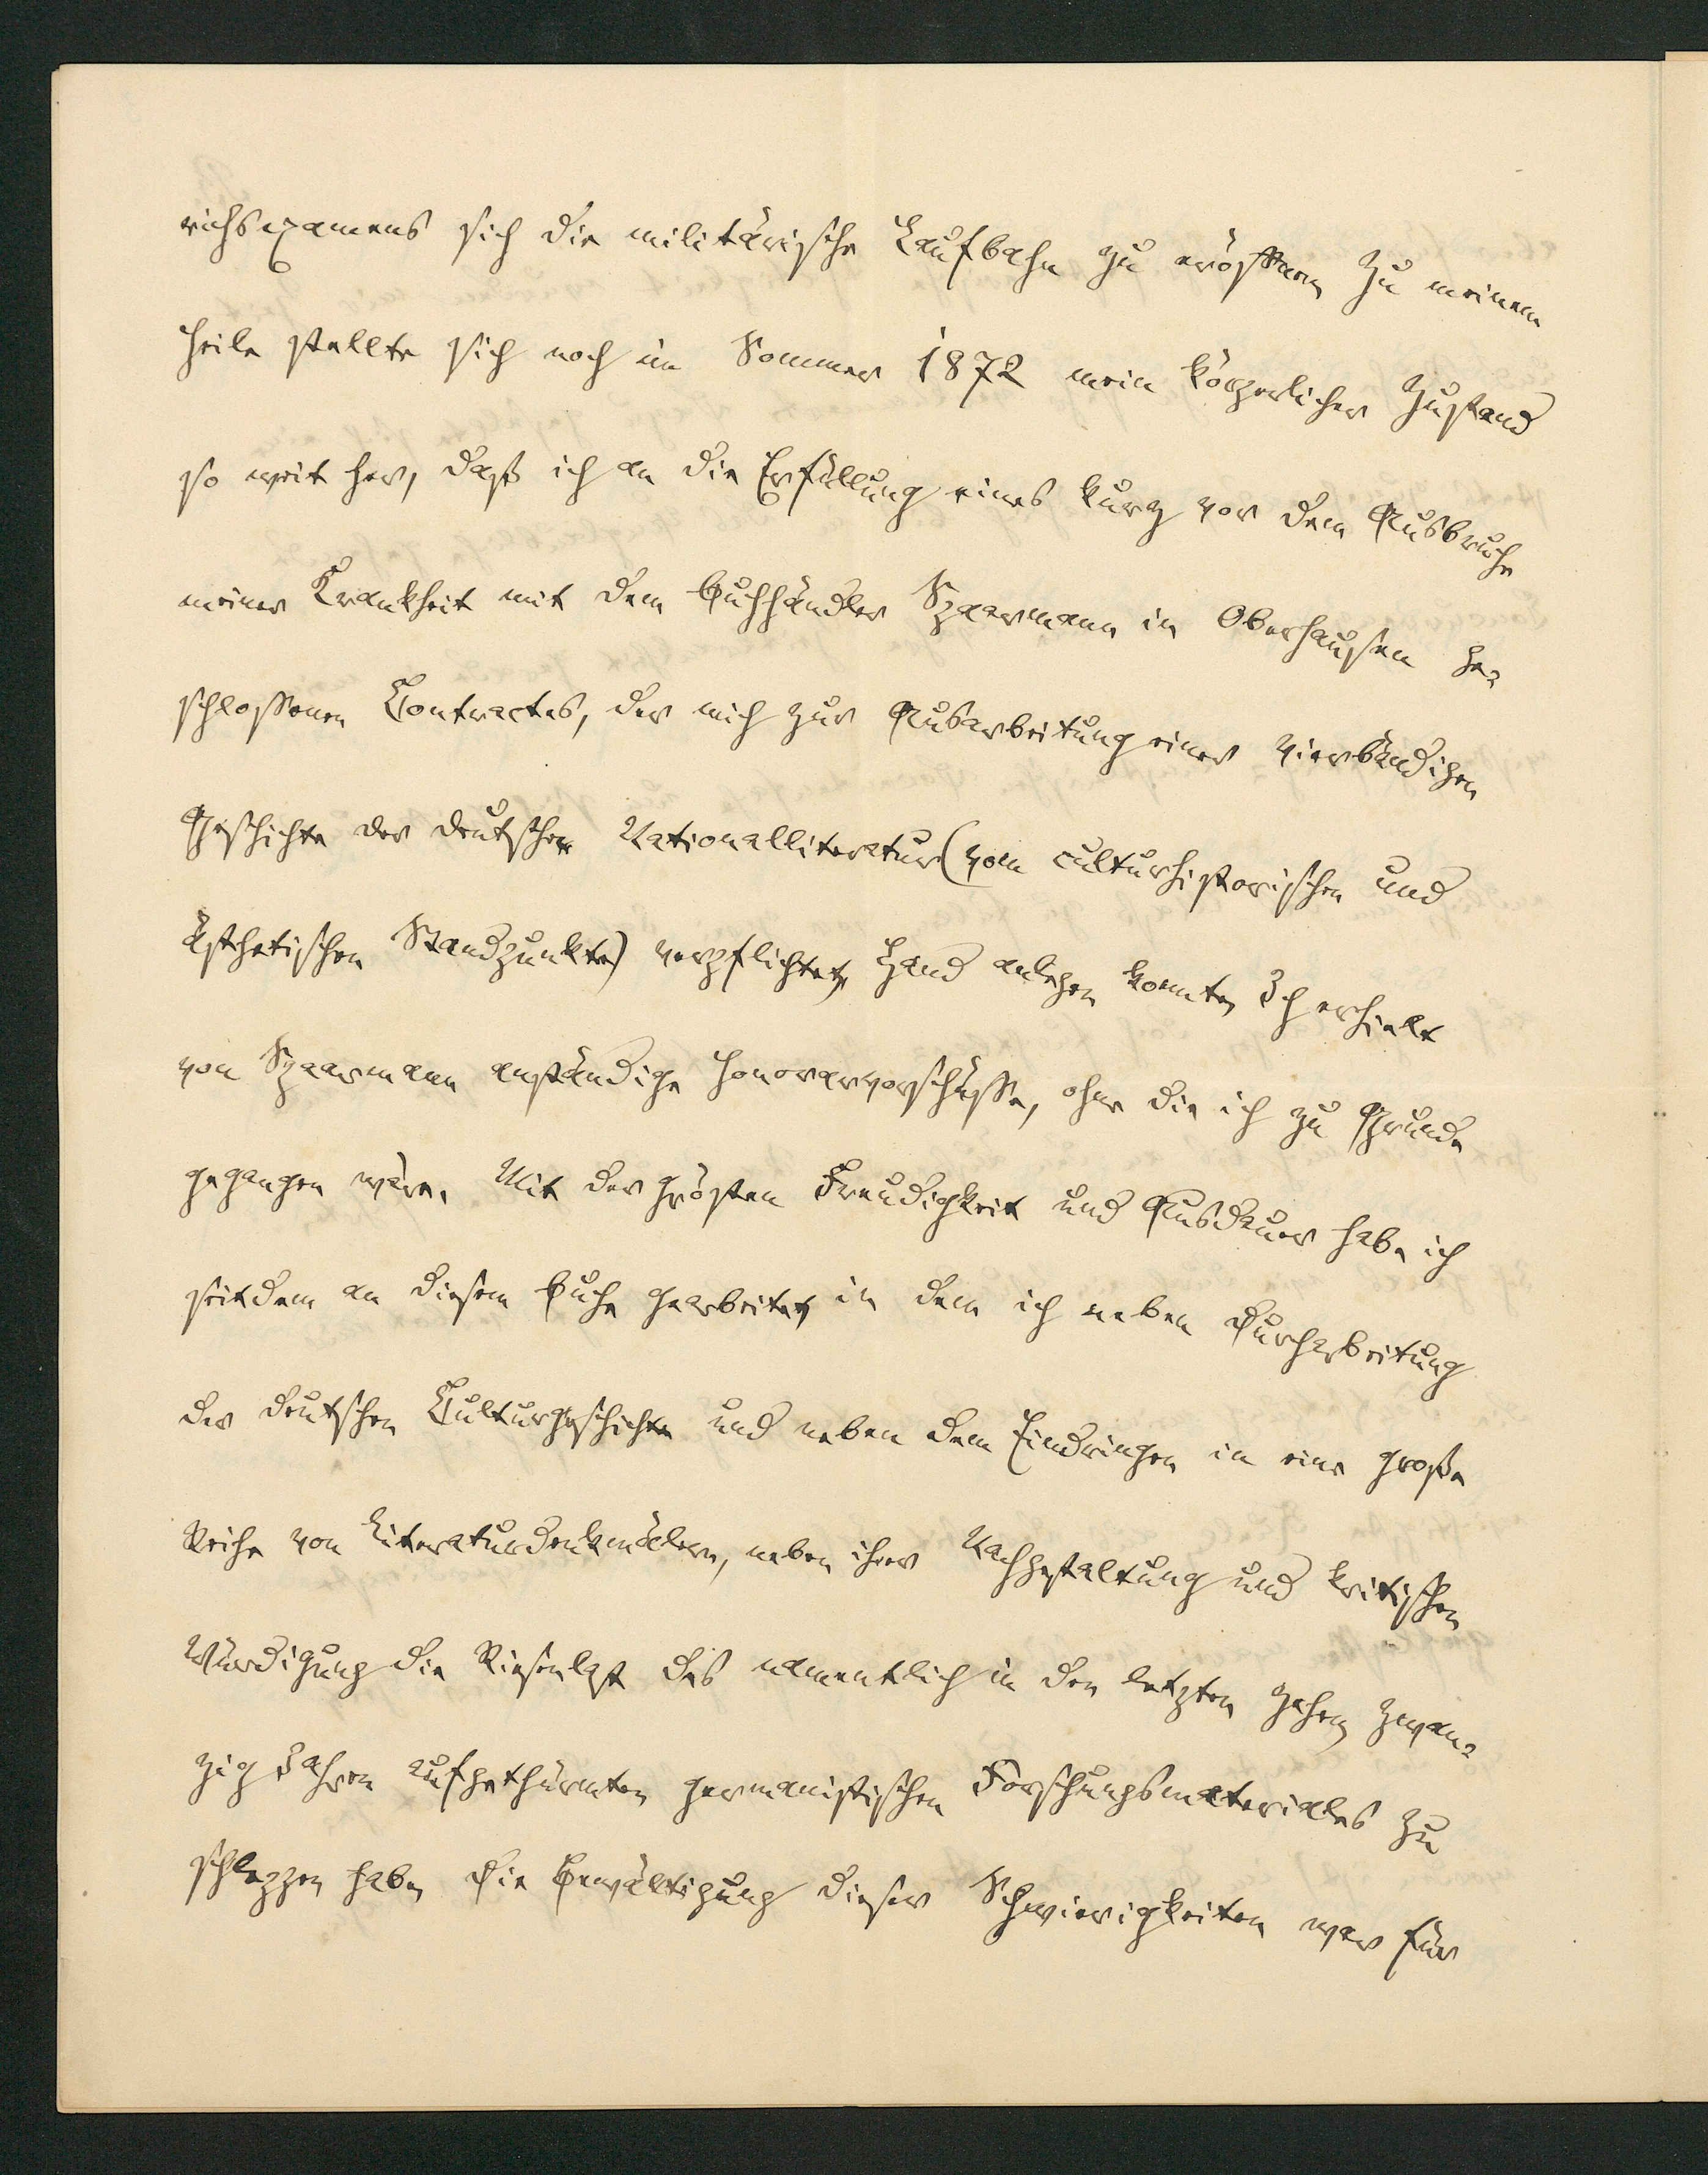 richsexamens sich die militärische Laufbahn zu eröffnen. Zu meinem
Heile stellte sich noch im Sommer 1872 mein körperlicher Zustand
so weit her, daß ich an die Erfüllung eines kurz vor dem Ausbruche
meiner Krankheit mit dem Buchhändler Spaarmann in Oberhausen ge-
schlossenen Contractes, der mich zur Ausarbeitung einer vierbändigen
Geschichte der deutschen Nationalliteratur (vom culturhistorischen und
ästhetischen Standpunkte) verpflichtet, Hand anlegen konnte. Ich erhielt
von Spaarmann anständige Honorarvorschüsse, ohne die ich zu Grunde
gegangen wäre. Mit der grösten Freudigkeit und Ausdauer habe ich
seitdem an diesem Buche gearbeitet, in dem ich neben Durcharbeitung
der deutschen Kulturgeschichte und neben dem Eindringen in eine große
Reihe von Literaturdenkmälern, neben ihrer Nachgestaltung und kritischen
Würdigung die Riesenlast des namentlich in den letzten zehn, zwan-
zig Jahren aufgethürmten germanistischen Forschungsmateriales zu
schleppen habe. Die Bewältigung dieser Schwierigkeiten war für